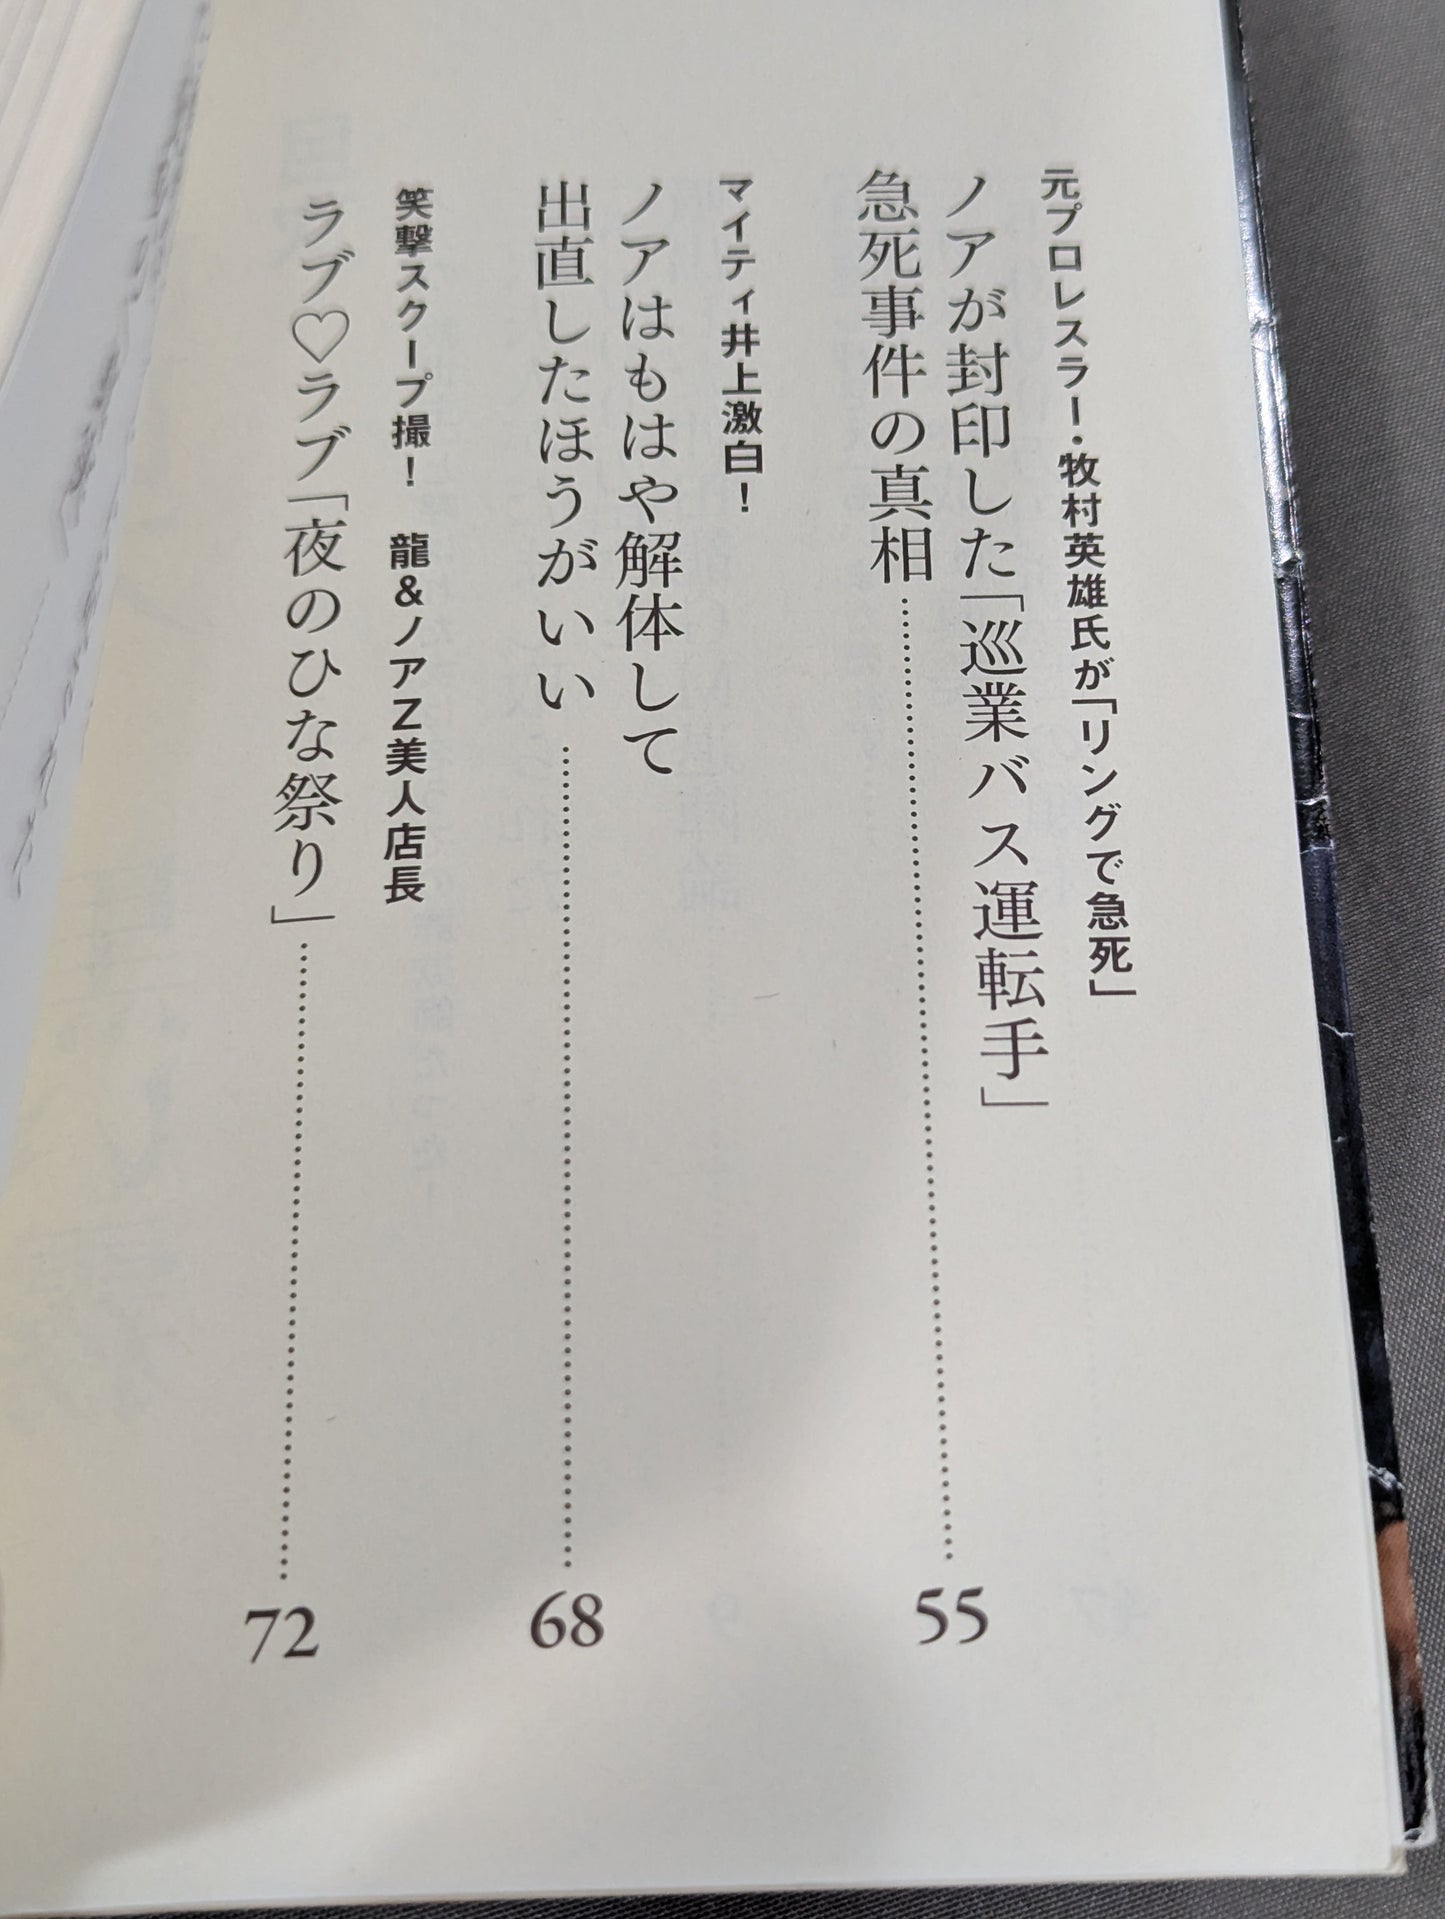 元プロレスラー・牧村英雄氏が「リングで急死」
ノアが封印した「巡業バス運転手」
急死事件の真相……………………55
マイティ井上激白！
ノアはもはや解体して
出直したほうがいい……………………68
笑撃スクープ撮！　龍&ノアZ美人店長
ラブ♡ラブ「夜のひな祭り」……………………72